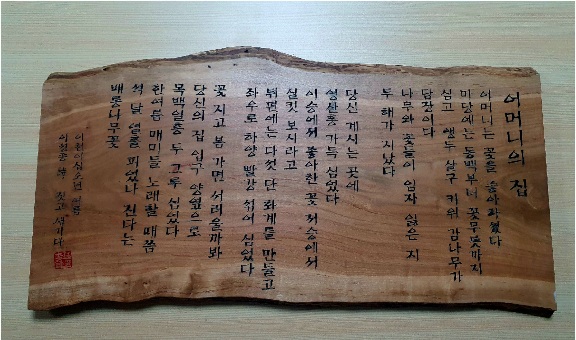 어머니의 집
어머니는 꽃을 좋아하셨다
마당에는 동백부터 꽃무릇까지
심고 앵두 살구 키워 감나무가
담장이다
나무와 꽃들이 임자 잃은 지
두 해가 지났다
당신 계시는 곳에
영산홍 가득 심었다
이승에서 좋아한 꽃 저승에서
실컷 보시라고
뒤편에는 다섯 단 화계를 만들고
좌우로 하양 빨강 섞어 심었다
꽃 지고 봄 가면 서러울까봐
당신의 집 입구 양옆으로
목백일홍 두 그루 심었다
한여름 매미들 노래할 때쯤
석 달 열흘 피었나 진다는
배롱나무꽃
이천이십 년 여름
이 짓고 새기다